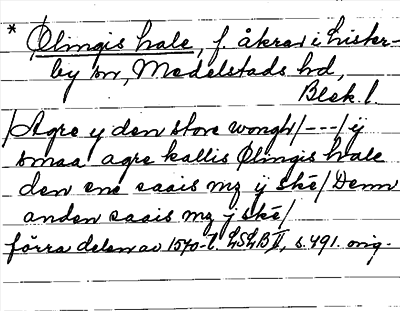 * Ølingis hale, f. åkrar i Lister-
by sn, Medelstads hd,
Blek. l.
/Agre y den store wongh/ --- / ij
smaa agre kallis Ølingis hale
den ene saais mz ij skē / Denn
anden saais mz j skē /
förra delen av 1500-t. LSLB II, s. 491. orig.